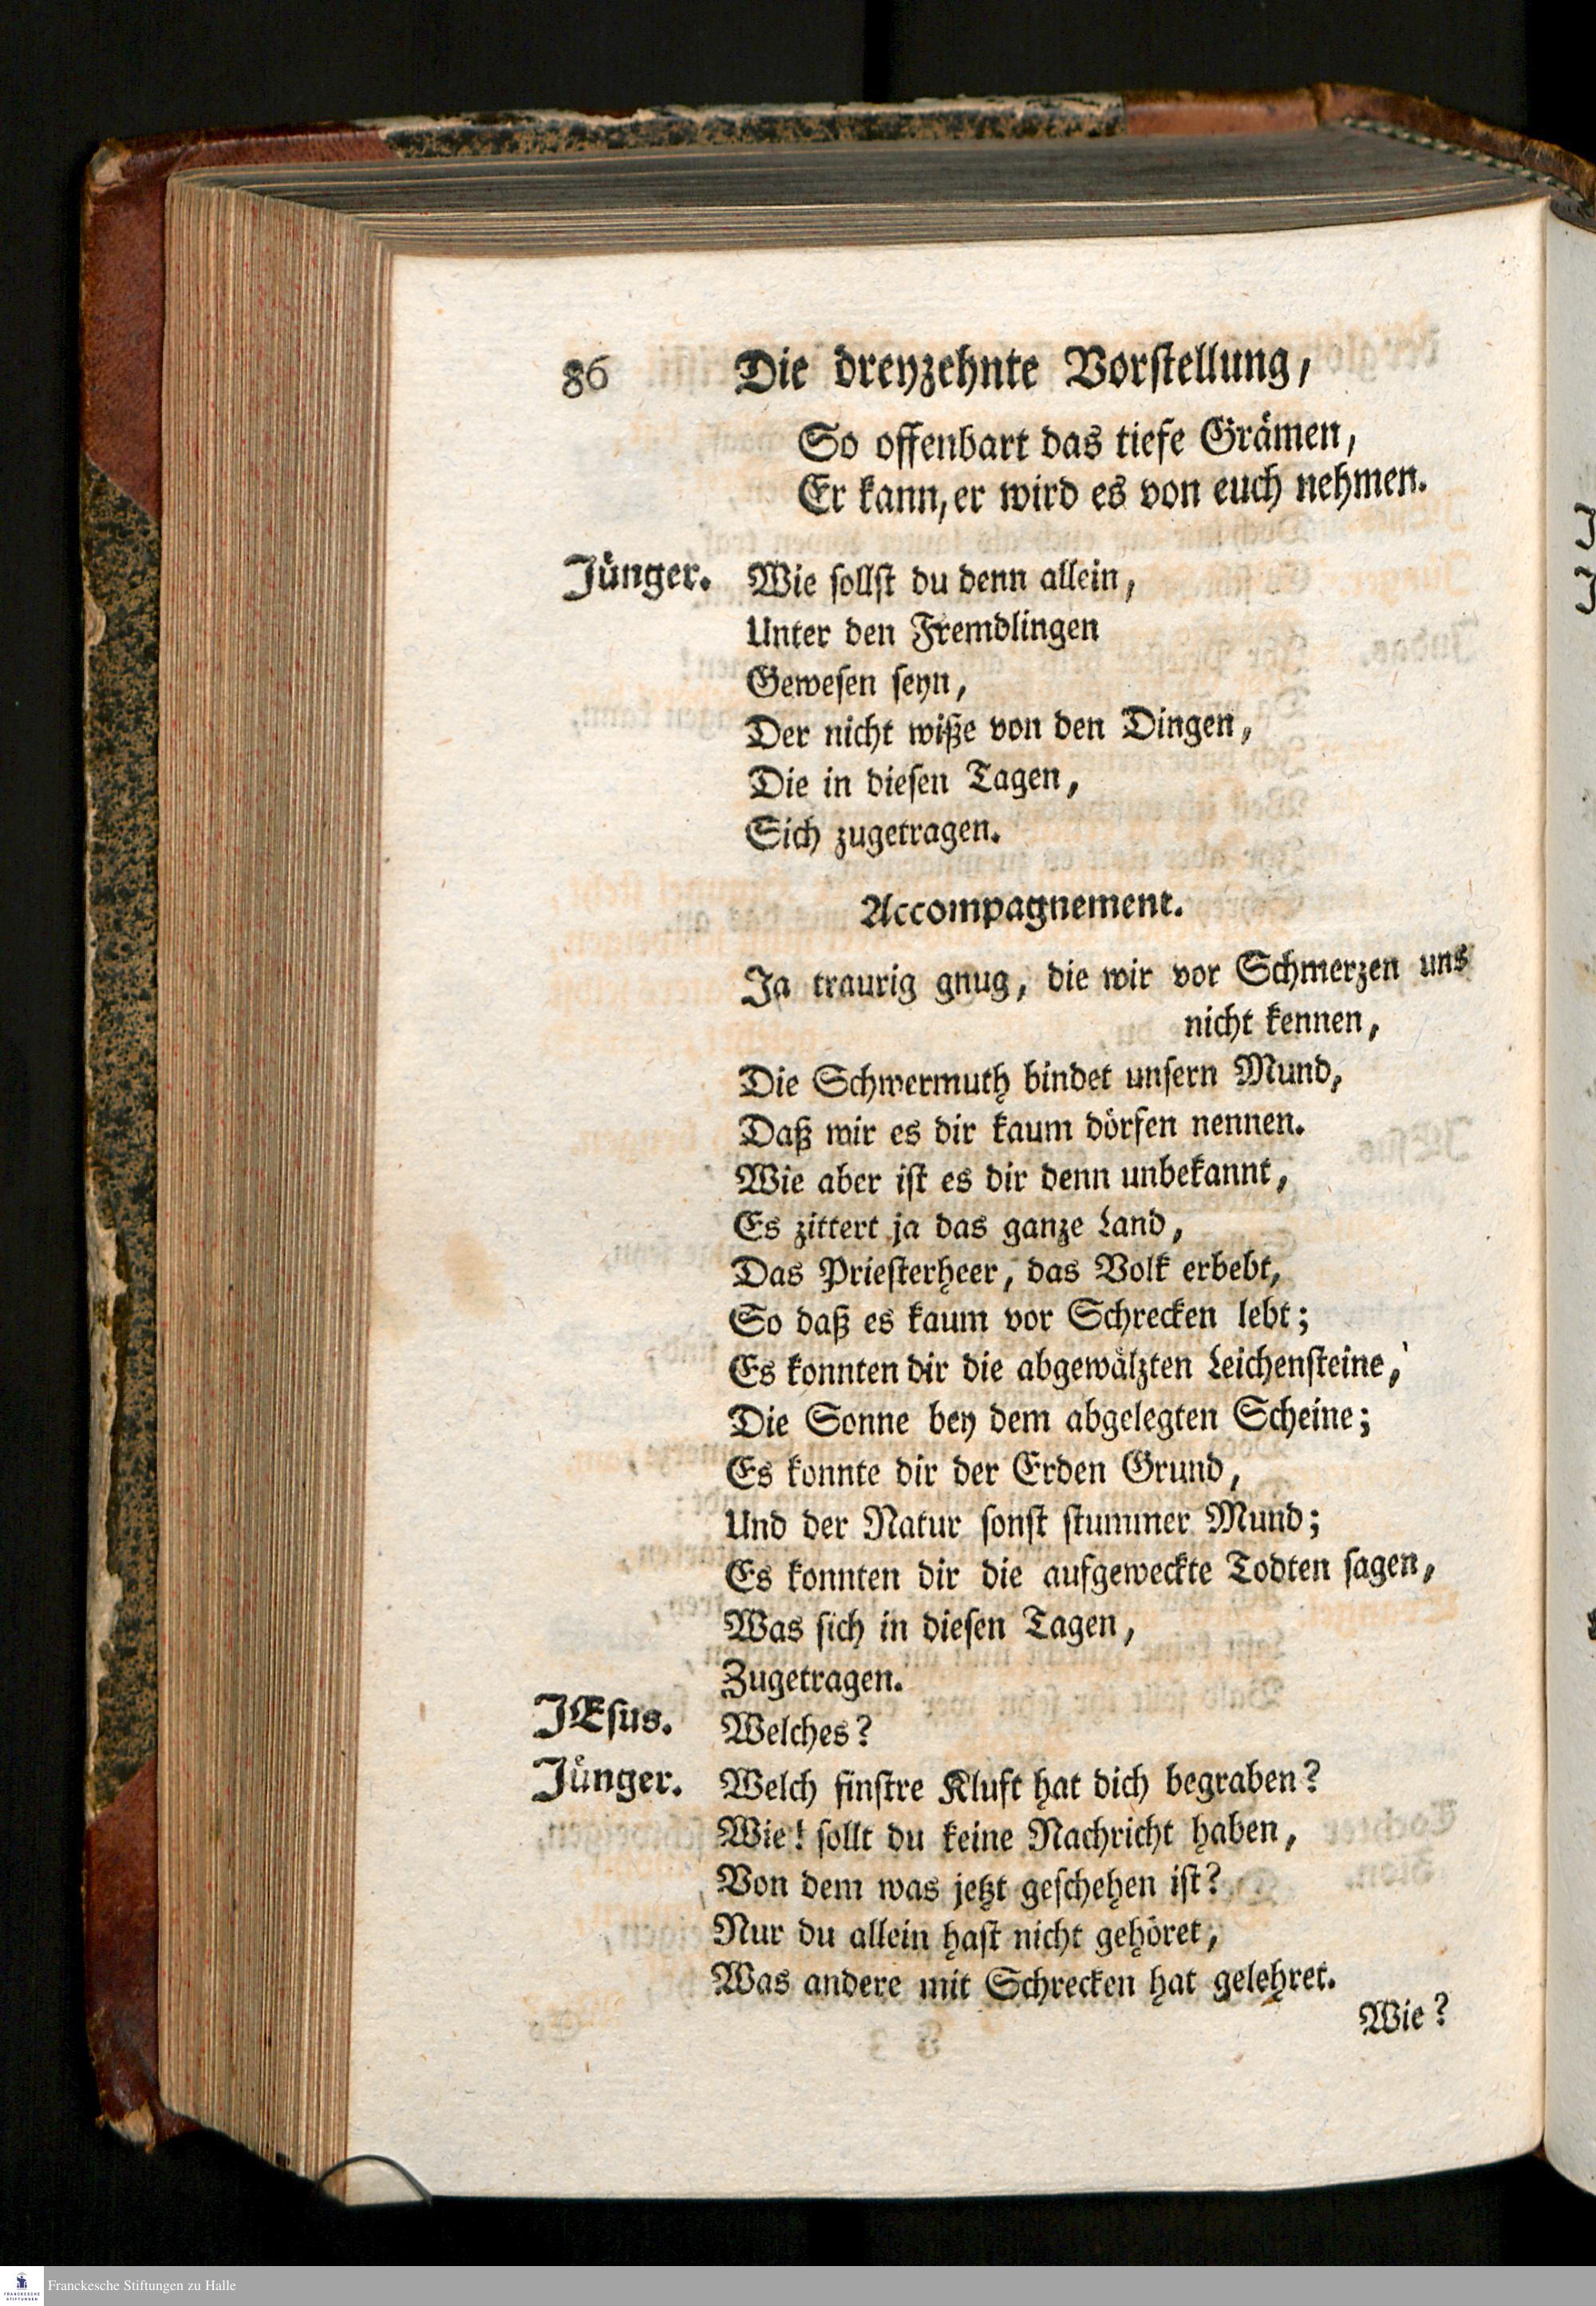 86 Die dreyzehnte Vorstellung,
So offenbart das tiefe Grämen,
Er kann, er wird es von euch nehmen.
Jünger. Wie sollst du denn allein,
Unter den Fremdlingen
Gewesen seyn,
Der nicht wiße von den Dingen,
Die in diesen Tagen,
Sich zugetragen.
Accompagnement.
Ja traurig gnug, die wir vor Schmerzen uns
nicht kennen,
Die Schwermuth bindet unsern Mund,
Daß wir es dir kaum dörfen nennen.
Wie aber ist es dir denn unbekannt,
Es zittert ja das ganze Land,
Das Priesterheer, das Volk erbebt,
So daß es kaum vor Schrecken lebt;
Es konnten dir die abgewälzten Leichensteine,
Die Sonne bey dem abgelegten Scheine;
Es konnte dir der Erden Grund,
Und der Natur sonst stummer Mund;
Es konnten dir die aufgeweckte Todten sagen,
Was sich in diesen Tagen,
Zugetragen.
JEsus. Welches?
Jünger. Welch finstre Kluft hat dich begraben?
Wie! sollt du keine Nachricht haben,
Von dem was jetzt geschehen ist?
Nur du allein hast nicht gehöret,
Was andere mit Schrecken hat gelehret.
Wie?
Franckesche Stiftungen zu Halle